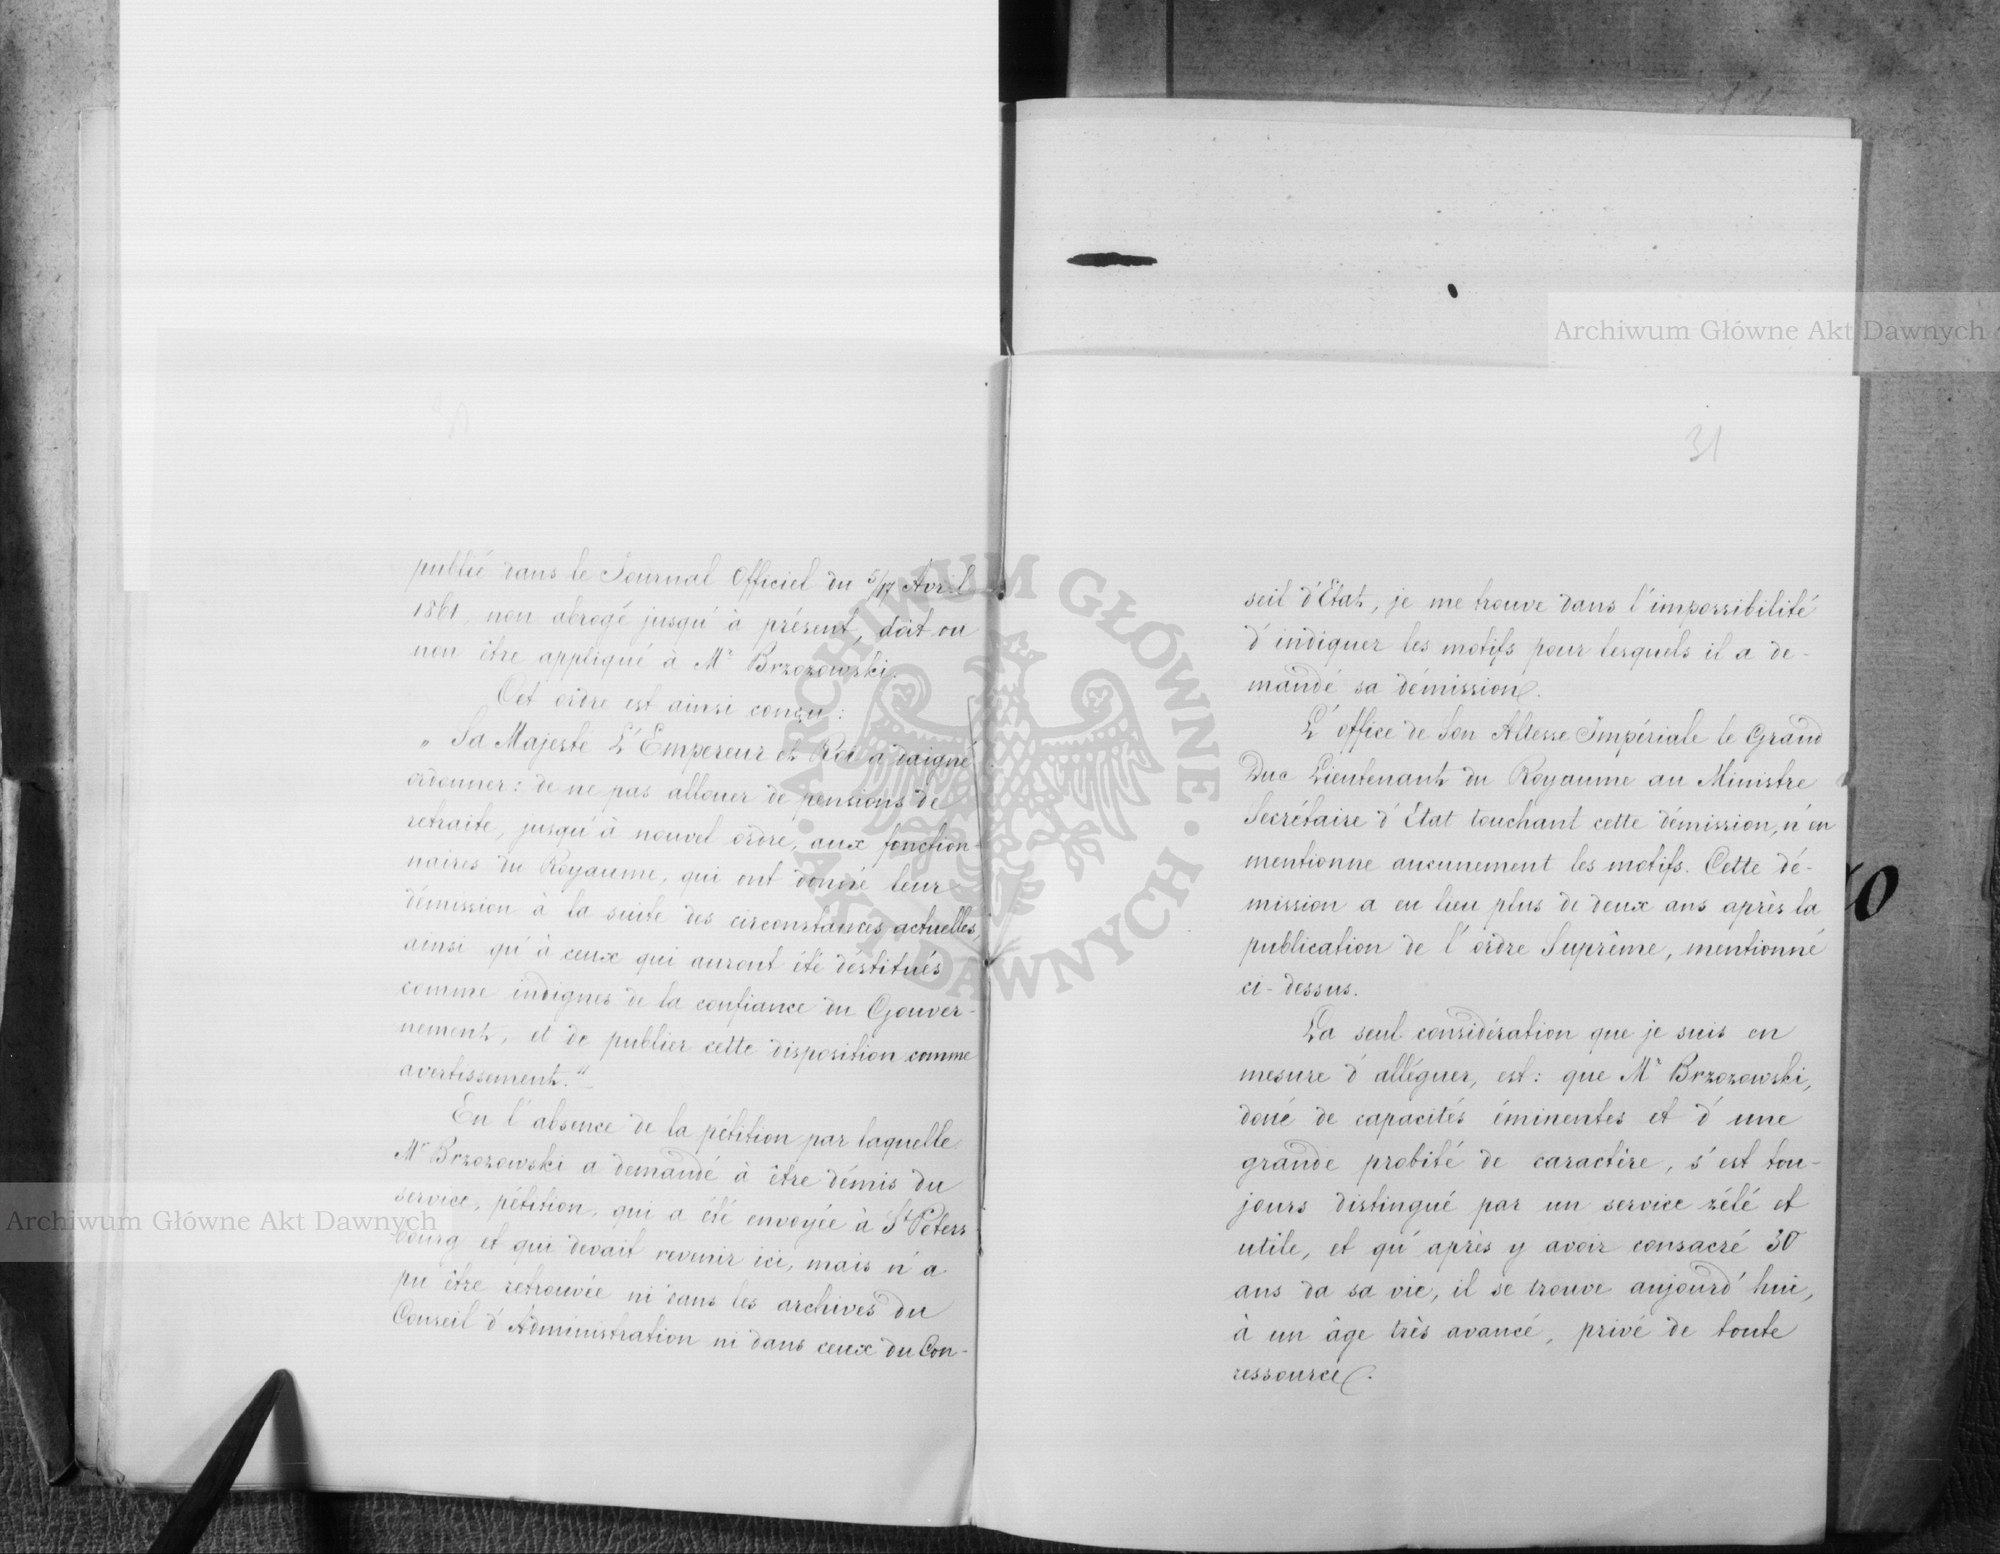 publié dans le Journal Officiel du 5/17 Avril
1861, non abrogé jusqu'à présent, doit ou
non être appliqué à Mr Brzozowski.
Cet ordre est ainsi conçu:
„ Sa Majesté L'Empereur et Roi a daigné
ordonner: de ne pas allouer de pensions de
retraite, jusqu'à nouvel ordre, aux fonction-
naires du Royaume, qui ont donné leur
démission à la suite des circonstances actuelles,
ainsi qu'à ceux qui auront été destitués
comme indignes de la confiance du Gouver-
nement, et de publier cette disposition comme
avertissement."
En l'absence de la pétition par laquelle
Mr Brzozowski a demandé à être démis du
service, pétition, qui a été envoyée à St Peters
bourg et qui devait revenir ici, mais n'a
pu être retrouvée ni dans les archives du
Conseil d'Administration ni dans ceux du Con-
31
seil d'Etat, je me trouve dans l'impossibilité
d'indiquer les motifs pour lesquels il a de-
mandé sa démission.
L'office de Son Altesse Impériale le Grand
Duc Lieutenant du Royaume au Ministre
Secrétaire d'Etat touchant cette démission, n'en
mentionne aucunement les motifs. Cette dé-
mission a eu lieu plus de deux ans après la
publication de l'ordre Suprême, mentionné
ci-dessus.
La seul considération que je suis en
mesure d'alléguer, est: que Mr Brzozowski,
doué de capacités éminentes et d'une
grande probité de caractère, s'est tou-
jours distingué par un service zélé et
utile, et qu'après y avoir consacré 30
ans da sa vie, il se trouve aujourd'hui,
à un âge très avancé, privé de toute
ressource.
Archiwum Główne Akt Dawnych
Archiwum Główne Akt Dawnych
ARCHIWUM GŁÓWNE • AKT DAWNYCH •